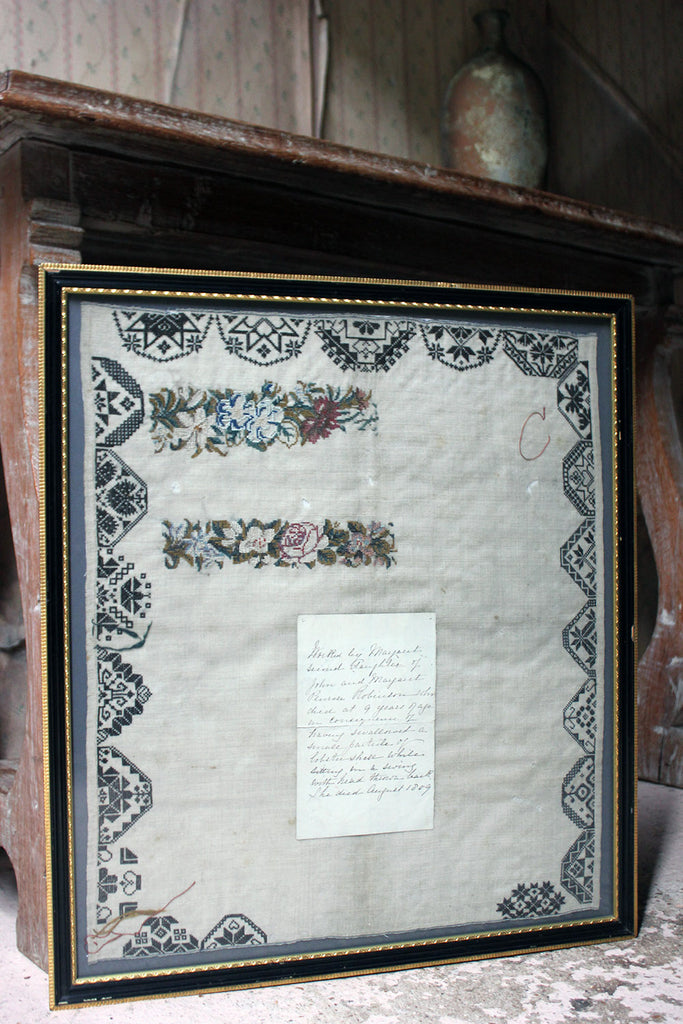 C
Worked by Margaret,
second daughter of
John and Margaret
Robinson who
died at 9 years of age
in consequence of
having swallowed a
small particle of
lobster shell whilst
sitting in a swing
with head thrown back
She died August 1809